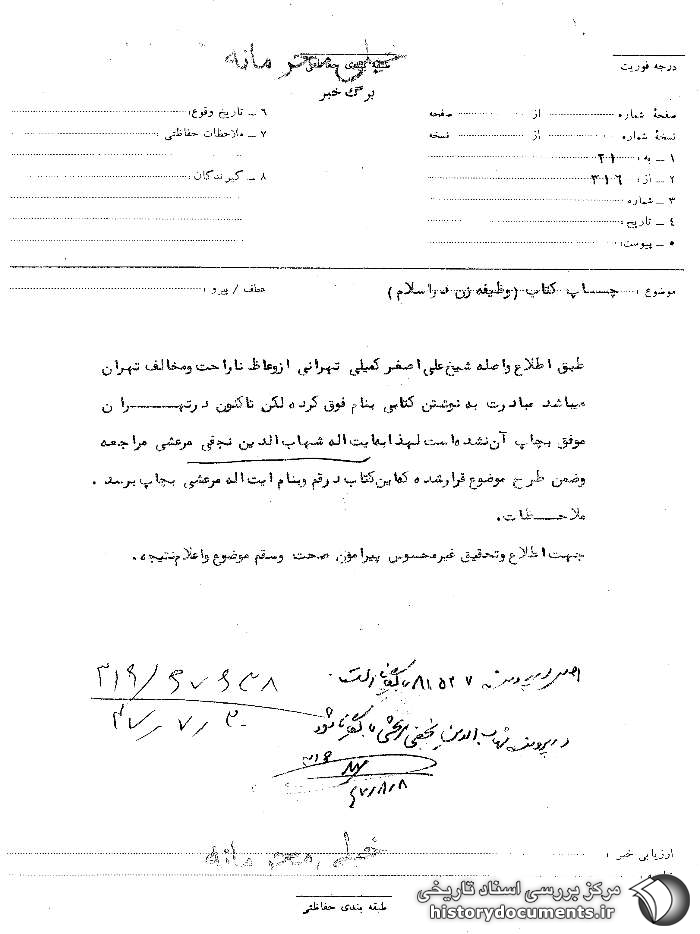 درجه فوریت
خیلی محرمانه
برگ خبر
صفحهٔ شماره از صفحه
نسخهٔ شماره از نسخه
۱ ـ به: ۲۱۰
۲ ـ از: ۳۱۶
۳ ـ شماره
۴ ـ تاریخ:
۵ ـ پیوست:
۶ ـ تاریخ وقوع:
۷ ـ ملاحظات حفاظتی:
۸ ـ گیرندگان:
موضوع: چساپ کتاب (وظیفه زن در اسلام)
عطف / پیرو:
طبق اطلاع واصله شیخ علی اصغر کمیلی تهرانی ازوعاظ ناراحت ومخالف تهران
میباشد مبادرت به نوشتن کتابی بنام فوق کرده لکن تاکنون درتهران
موفق بچاپ آن نشده است لهذا بهایت اله شهاب الدین نجفی مرعشی مراجعه
وضمن طرح موضوع قرارشده که این کتاب در قم وبنام ایت اله مرعشی بچاپ برسد .
ملاحظات.
جهت اطلاع وتحقیق غیرمحسوس پیرامون صحت وسقم موضوع واعلام نتیجه.
اصل در پرونده ۸۱۵۲۷ بایگانی است
۳۱۶/۶۷۶۳۸
۴۷/۷/۳۰
در پرونده شهاب الدین نجفی مرعشی بایگانی شود
۳۱۶
۴۷/۸/۸
ارزیابی خبر:
خیلی محرمانه
طبقه بندی حفاظتی
مرکز بررسی اسناد تاریخی
historydocuments.ir